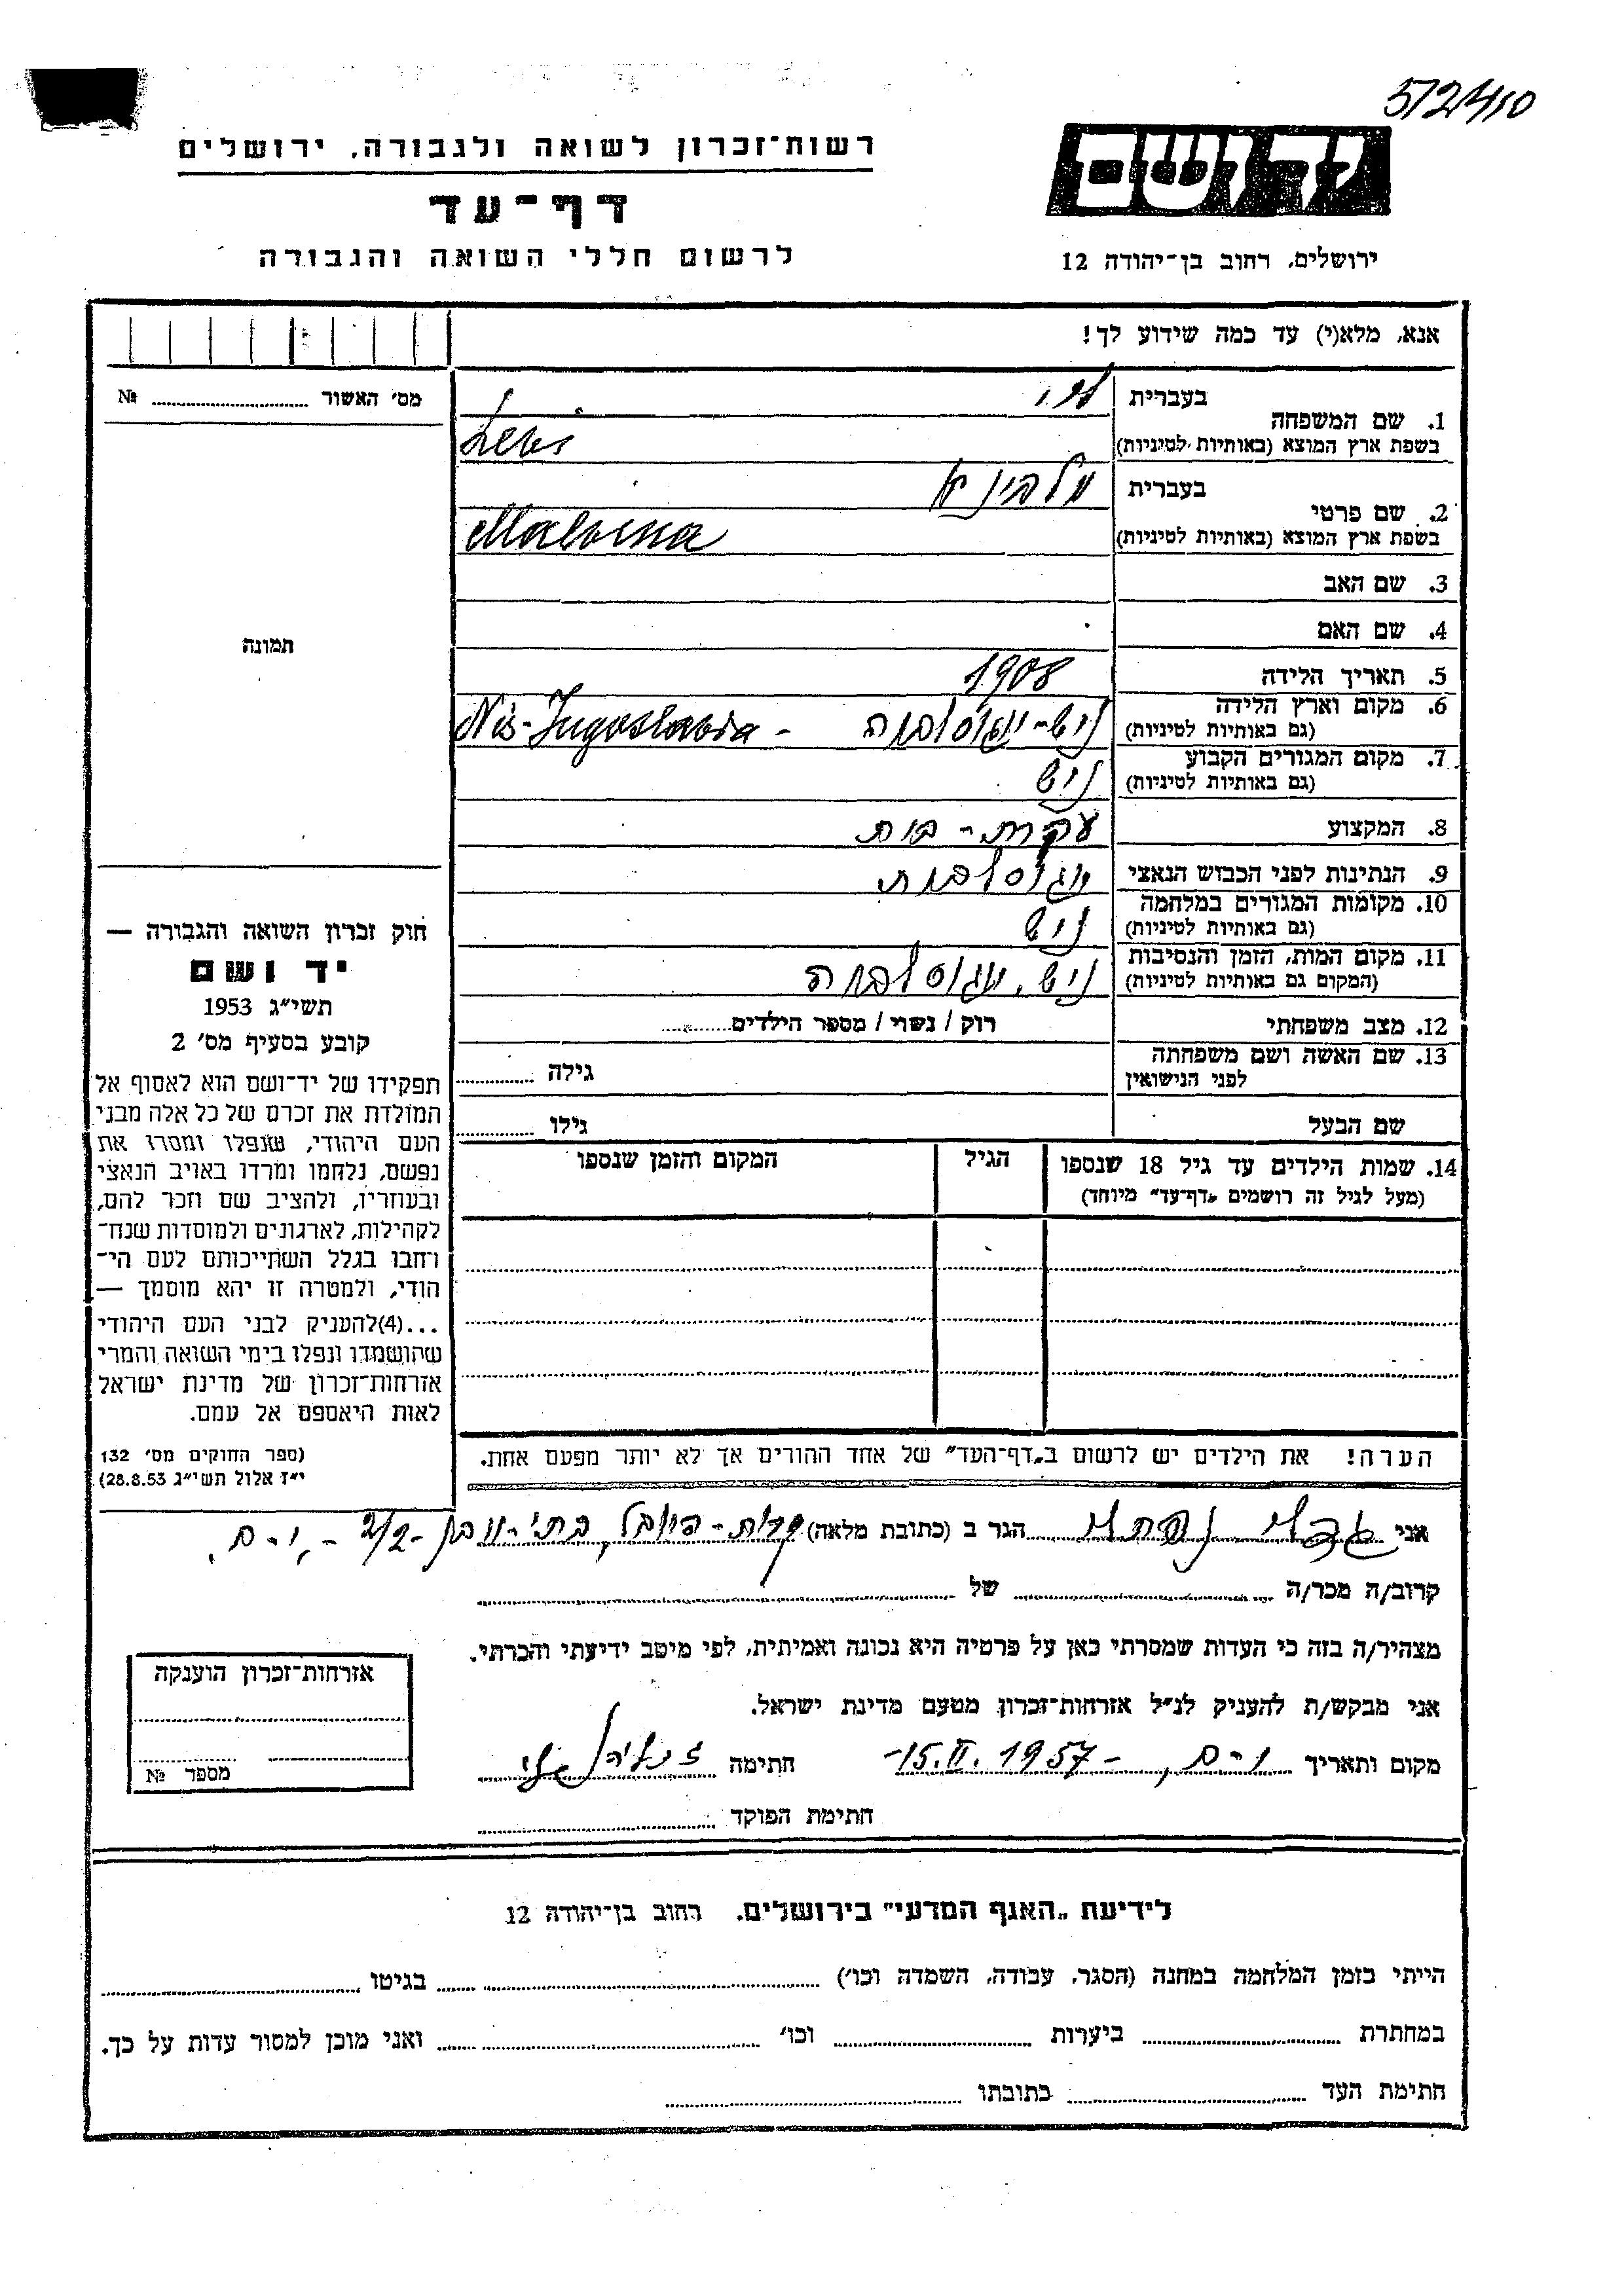 572410
רשות־זכרון לשואה ולגבורה, ירושלים
יד ושם
דף־עד
לרשום חללי השואה והגבורה
ירושלים, רחוב בן־יהודה 12
אנא, מלא(י) עד כמה שידוע לך!
מס׳ האשור № 
1. שם המשפחה
בעברית לוי
בשפת ארץ המוצא (באותיות לטיניות) Levi
2. שם פרטי
בעברית מלבינא
בשפת ארץ המוצא (באותיות לטיניות) Malvina
3. שם האב
4. שם האם
תמונה
5. תאריך הלידה 1908
6. מקום וארץ הלידה
(גם באותיות לטיניות) ניש-יוגוסלביה - Niš-Jugoslavia
7. מקום המגורים הקבוע
(גם באותיות לטיניות) ניש
8. המקצוע עקרת-בית
9. הנתינות לפני הכבוש הנאצי יוגוסלבית
10. מקומות המגורים במלחמה
(גם באותיות לטיניות) ניש
11. מקום המות, הזמן והנסיבות
(המקום גם באותיות לטיניות) ניש, יוגוסלביה
12. מצב משפחתי רוק / נשוי / מספר הילדים
13. שם האשה ושם משפחתה
לפני הנישואין גילה
שם הבעל גילו
14. שמות הילדים עד גיל 18 שנספו הגיל המקום והזמן שנספו
(מעל לגיל זה רושמים „דף־עד״ מיוחד)
חוק זכרון השואה והגבורה —
יד ושם
תשי״ג 1953
קובע בסעיף מס׳ 2
תפקידו של יד־ושם הוא לאסוף אל
המולדת את זכרם של כל אלה מבני
העם היהודי, שנפלו ומסרו את
נפשם, נלחמו ומרדו באויב הנאצי
ובעוזריו, ולהציב שם וזכר להם,
לקהילות, לארגונים ולמוסדות שנח־
רחבו בגלל השתייכותם לעם הי־
הודי, ולמטרה זו יהא מוסמך —
...(4)להעניק לבני העם היהודי
שהושמדו ונפלו בימי השואה והמרי
אזרחות־זכרון של מדינת ישראל
לאות היאספם אל עמם.
(ספר החוקים מס׳ 132
י״ז אלול תשי״ג 28.8.53)
הערה! את הילדים יש לרשום ב„דף־העד״ של אחד ההורים אך לא יותר מפעם אחת.
אני הגר ב (כתובת מלאה) קרית-היובל,
קרוב/ה מכר/ה של
מצהיר/ה בזה כי העדות שמסרתי כאן על פרטיה היא נכונה ואמיתית, לפי מיטב ידיעתי והכרתי.
אני מבקש/ת להעניק לנ״ל אזרחות־זכרון מטעם מדינת ישראל.
מקום ותאריך י-ם, -15.II.1957- חתימה
חתימת הפוקד
אזרחות־זכרון הוענקה
מספר №
לידיעת „האגף המדעי״ בירושלים. רחוב בן־יהודה 12
הייתי בזמן המלחמה במחנה (הסגר, עבודה, השמדה וכו׳) בגיטו
במחתרת ביערות וכו׳ ואני מוכן למסור עדות על כך.
חתימת העד כתובתו